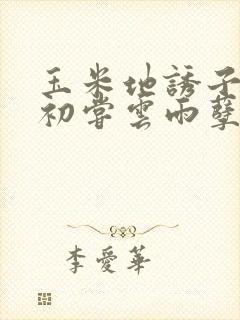 玉米地誘子
初嘗雲雨孽
李愛華